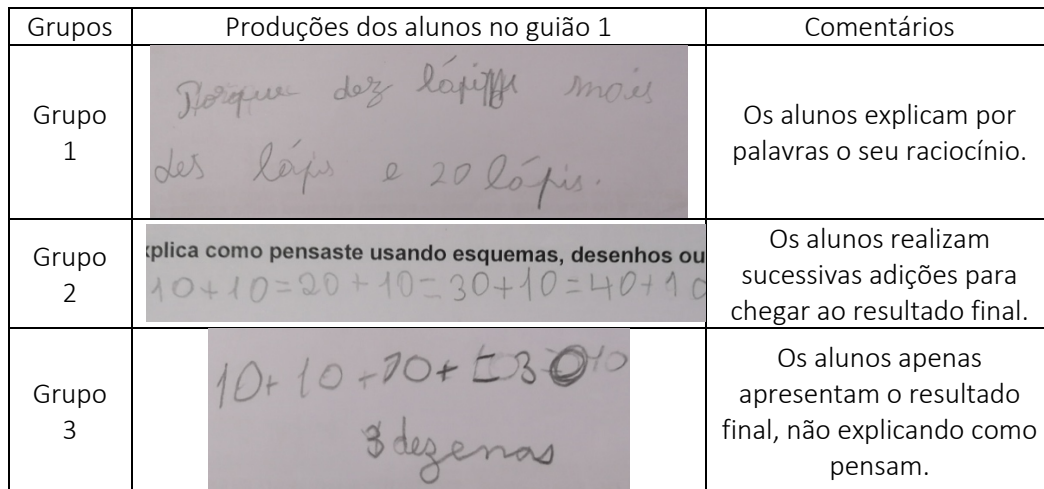 Grupos Produções dos alunos no guião 1 Comentários
Grupo
1
Porque dez lápis mais
des lápis e 20 lápis.
Os alunos explicam por
palavras o seu raciocínio.
Grupo
2
xplica como pensaste usando esquemas, desenhos ou
10+10=20+10=30+10=40+10
Os alunos realizam
sucessivas adições para
chegar ao resultado final.
Grupo
3
10+10+10+=30
3 dezenas
Os alunos apenas
apresentam o resultado
final, não explicando como
pensam.